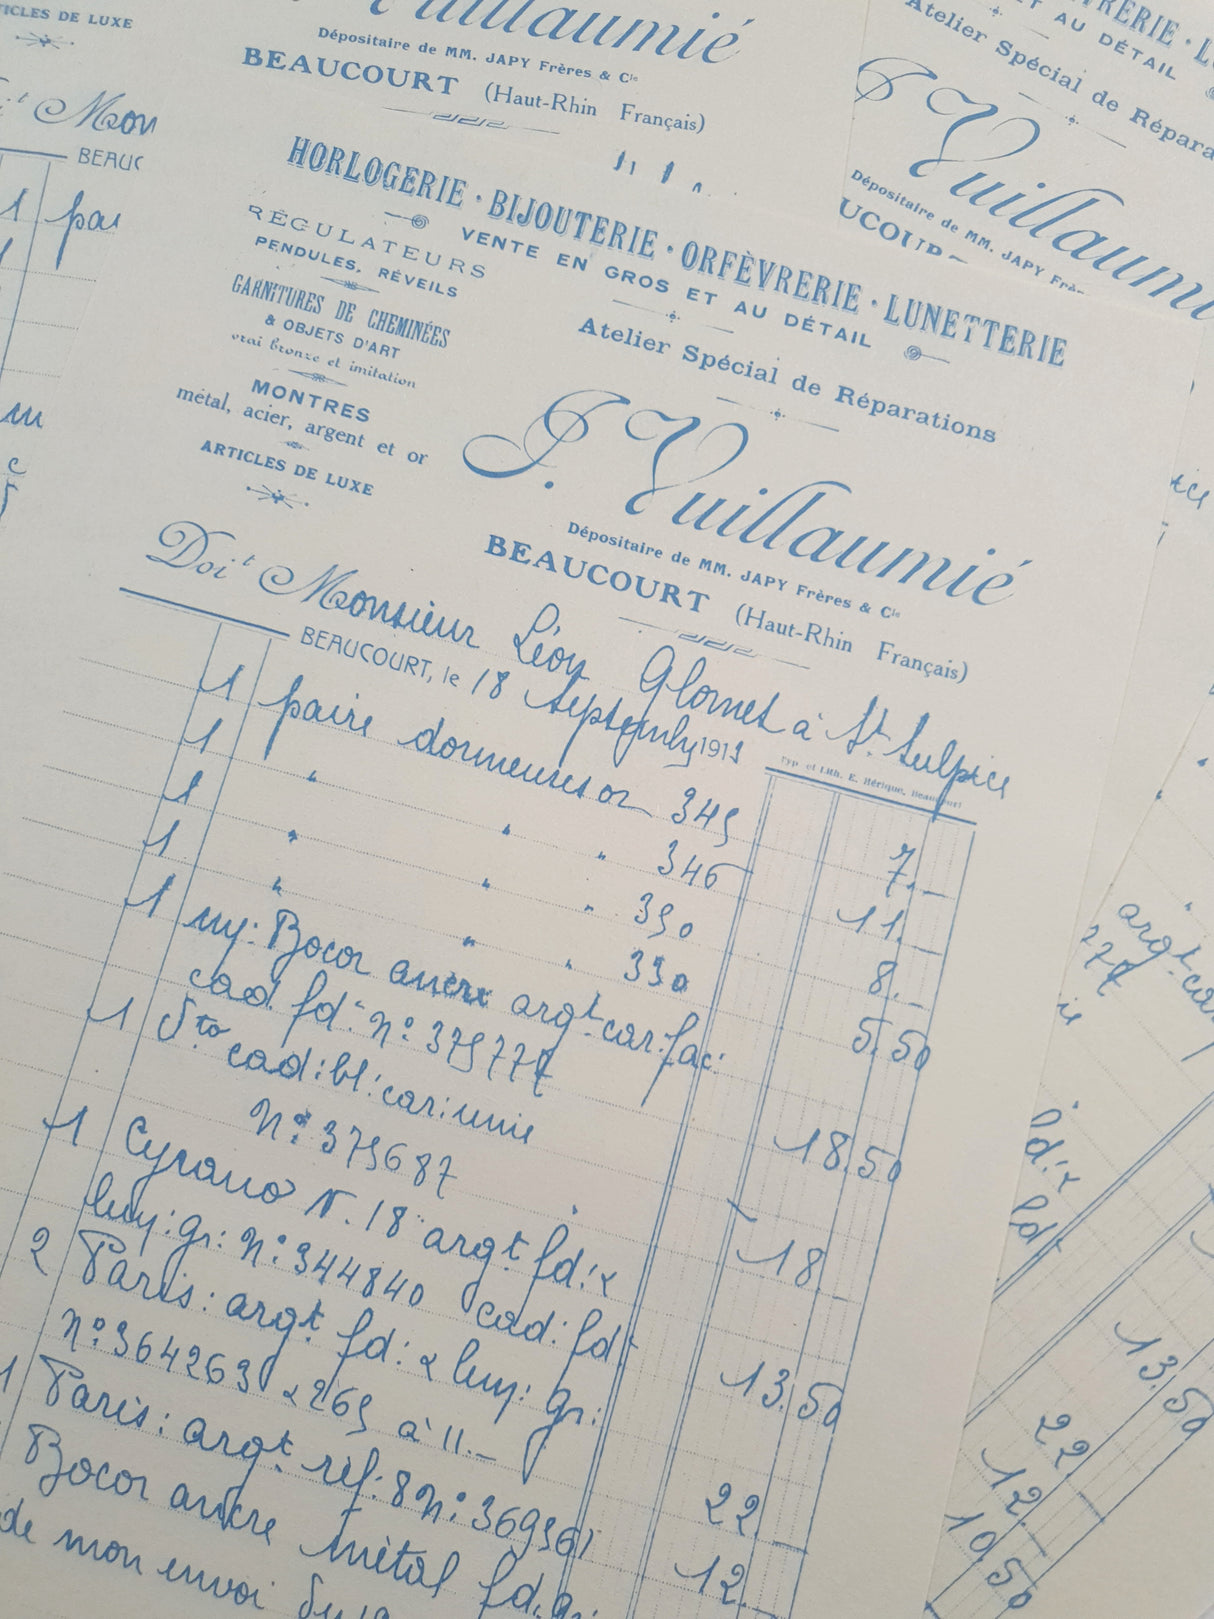 TICLES DE LUXE
Mon
BEAUC
1 pai
Vuillaumié
Dépositaire de MM. JAPY Frères & Cie
BEAUCOURT (Haut-Rhin Français)
TRERIE · L
ET AU DÉTAIL
Atelier Spécial de Répara
J. Vuillaumi
Dépositaire de MM. JAPY Frè
UCOUR
HORLOGERIE · BIJOUTERIE · ORFÈVRERIE · LUNETTERIE
VENTE EN GROS ET AU DÉTAIL
Atelier Spécial de Réparations
RÉGULATEURS
PENDULES, RÉVEILS
GARNITURES DE CHEMINÉES
& OBJETS D'ART
vrai bronze et imitation
MONTRES
métal, acier, argent et or
ARTICLES DE LUXE
J. Vuillaumié
Dépositaire de MM. JAPY Frères & Cie
BEAUCOURT (Haut-Rhin Français)
Doit Monsieur Léon Glomet à St. Sulpice
BEAUCOURT, le 18 Septembre 1919
Typ. et Lith. E. Bérique, Beaucourt
1 paire dormeuses or 345 7.—
1 " " " 346 11.—
1 " " " 350 8.—
1 " " " 330 5.50
1 uy: Bocor ancre argt car: fac:
cad. fd: No: 375777 18.50
1 Dto cad: bl: car: unie
No: 375687 18.—
1 Cyrano N. 18 argt fd: &
luy: gr: No: 344840 cad: fd: 13.50
2 Paris: argt fd: & luy: gr:
No: 364263 & 265 à 11.— 22.—
1 Paris: argt réf: 8 No: 369361 12.—
Bocor ancre métal fd. gr:
de mon envoi du
argt car
fd: &
fd:
13.50
22
12.
10.50